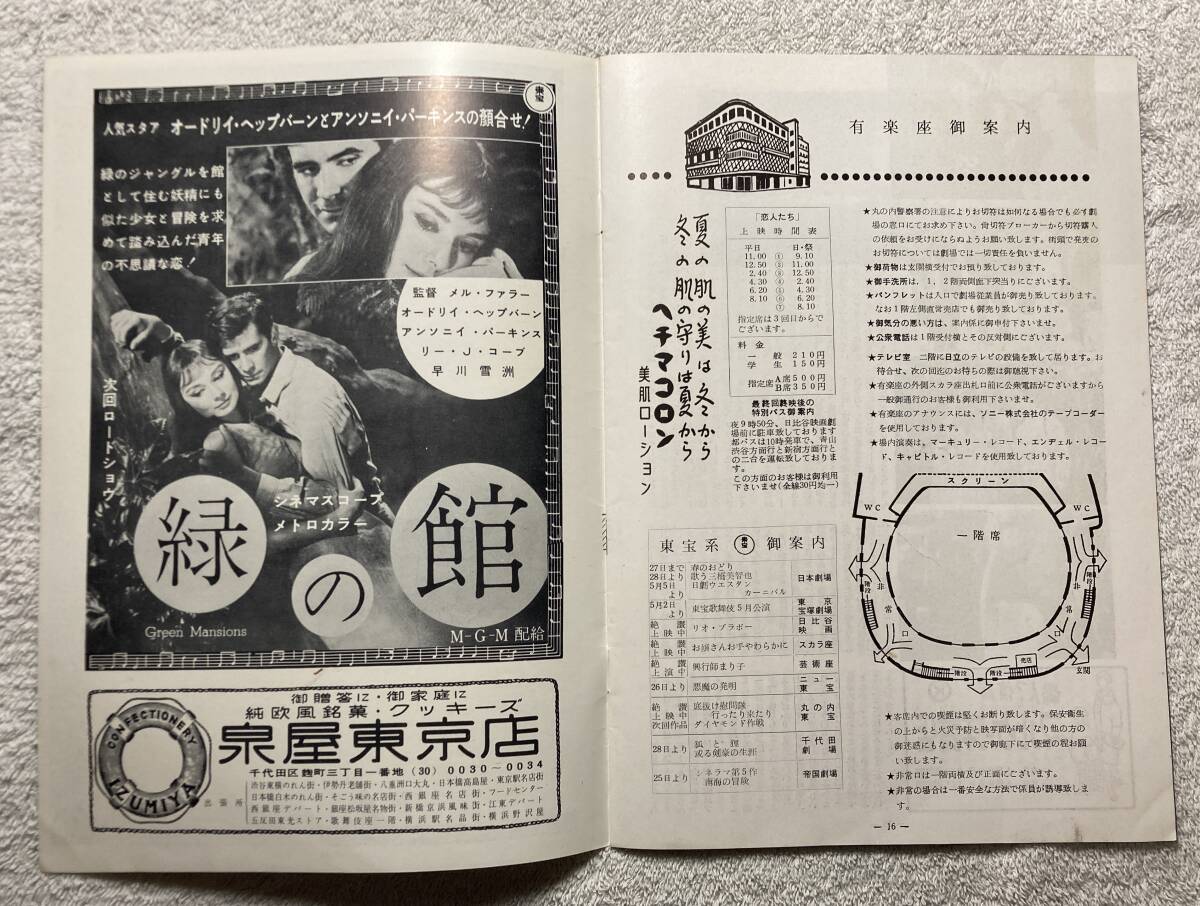 東宝
人気スタア オードリイ・ヘップバーンとアンソニイ・パーキンスの顔合せ!
緑のジャングルを館
として住む妖精にも
似た少女と冒険を求
めて踏み込んだ青年
の不思議な恋!
監督 メル・ファラー
オードリイ・ヘップバーン
アンソニイ・パーキンス
リー・J・コープ
早川雪洲
次回ロードショウ
シネマスコープ
メトロカラー
緑の館
Green Mansions
M-G-M 配給
御贈答に・御家庭に
純欧風銘菓・クッキーズ
泉屋東京店
千代田区麹町三丁目一番地 (30) 0030〜0034
CONFECTIONERY
IZUMIYA
出張所
渋谷東横のれん街・伊勢丹老舗街・八重洲口大丸・日本橋高島屋・東京駅名店街
日本橋白木のれん街・そごう味の名店街・西銀座名店街・フードセンター
西銀座デパート・銀座松坂屋名物街・新橋京浜風味街・江東デパート
五反田東光ストア・歌舞伎座一階・横浜駅名品街・横浜野沢屋
有楽座御案内
夏の肌の美は冬から
冬の肌の守りは夏から
ヘチマコロン
美肌ローション
「恋人たち」
上映時間表
平日 日・祭
11.00 ① 9.10
12.50 ② 11.00
2.40 ③ 12.50
4.30 ④ 2.40
6.20 ⑤ 4.30
8.10 ⑥ 6.20
⑦ 8.10
指定席は3回目からで
ございます。
料金
一般 210円
学生 150円
指定席 A席 500円
B席 350円
最終回終映後の
特別バス御案内
夜9時50分、日比谷映画劇
場前に駐車致しております
都バスは10時発車で、青山
渋谷方面行と新宿方面行と
の二台を運転致しておりま
す。
この方面のお客様は御利用
下さいませ(全線30円均一)
東宝系 東宝 御案内
27日まで 春のおどり
28日より 歌う三橋美智也
5月5日より 日劇ウエスタンカーニバル
日本劇場
5月2日より 東宝歌舞伎5月公演 東京宝塚劇場
絶讃上映中 リオ・ブラボー 日比谷映画
絶讃上映中 お嬢さんお手やわらかに スカラ座
絶讃上演中 興行師まり子 芸術座
26日より 悪魔の発明 ニュー東宝
絶讃上映中 底抜け慰問隊
行ったり来たり
次回作品 ダイヤモンド作戦
丸の内東宝
28日より 狐と狸
或る剣豪の生涯 千代田劇場
25日より シネラマ第5作
南海の冒険 帝国劇場
★丸の内警察署の注意によりお切符は如何なる場合でも必ず劇
場の窓口にてお求め下さい。尚切符ブローカーから切符購入
の依頼をお受けにならぬようお願い致します。街頭で発売の
お切符については劇場では一切責任を負いません。
★御荷物は玄関横受付でお預り致しております。
★御手洗所は、1、2階両側廊下突当りにございます。
★パンフレットは入口で劇場従業員が御売り致しております。
なお1階左側直営売店でも御売り致しております。
★御気分の悪い方は、案内係に御申付下さいませ。
★公衆電話は1階受付横とその反対側にございます。
★テレビ室 二階に日立のテレビの設備を致して居ります。お
待合せ、次の回迄のお待ちの際は御聴視下さい。
★有楽座の外側スカラ座出札口前に公衆電話がございますから
一般御通行のお客様も御利用下さいませ。
★有楽座のアナウンスには、ソニー株式会社のテープコーダー
を使用しております。
★場内演奏は、マーキュリー・レコード、エンヂェル・レコー
ド、キャピトル・レコードを使用致しております。
スクリーン
WC
WC
一階席
階段
階段
非常口
非常口
階段
階段
売店
玄関
★客席内での喫煙は堅くお断り致します。保安衛生
の上からと火災予防と映写面が暗くなり他の方の
御迷惑にもなりますので御廊下にて喫煙の程お願
い致します。
★非常口は一階両横及び正面にございます。
★非常の場合は一番安全な方法で係員が誘導致しま
す。
— 16 —